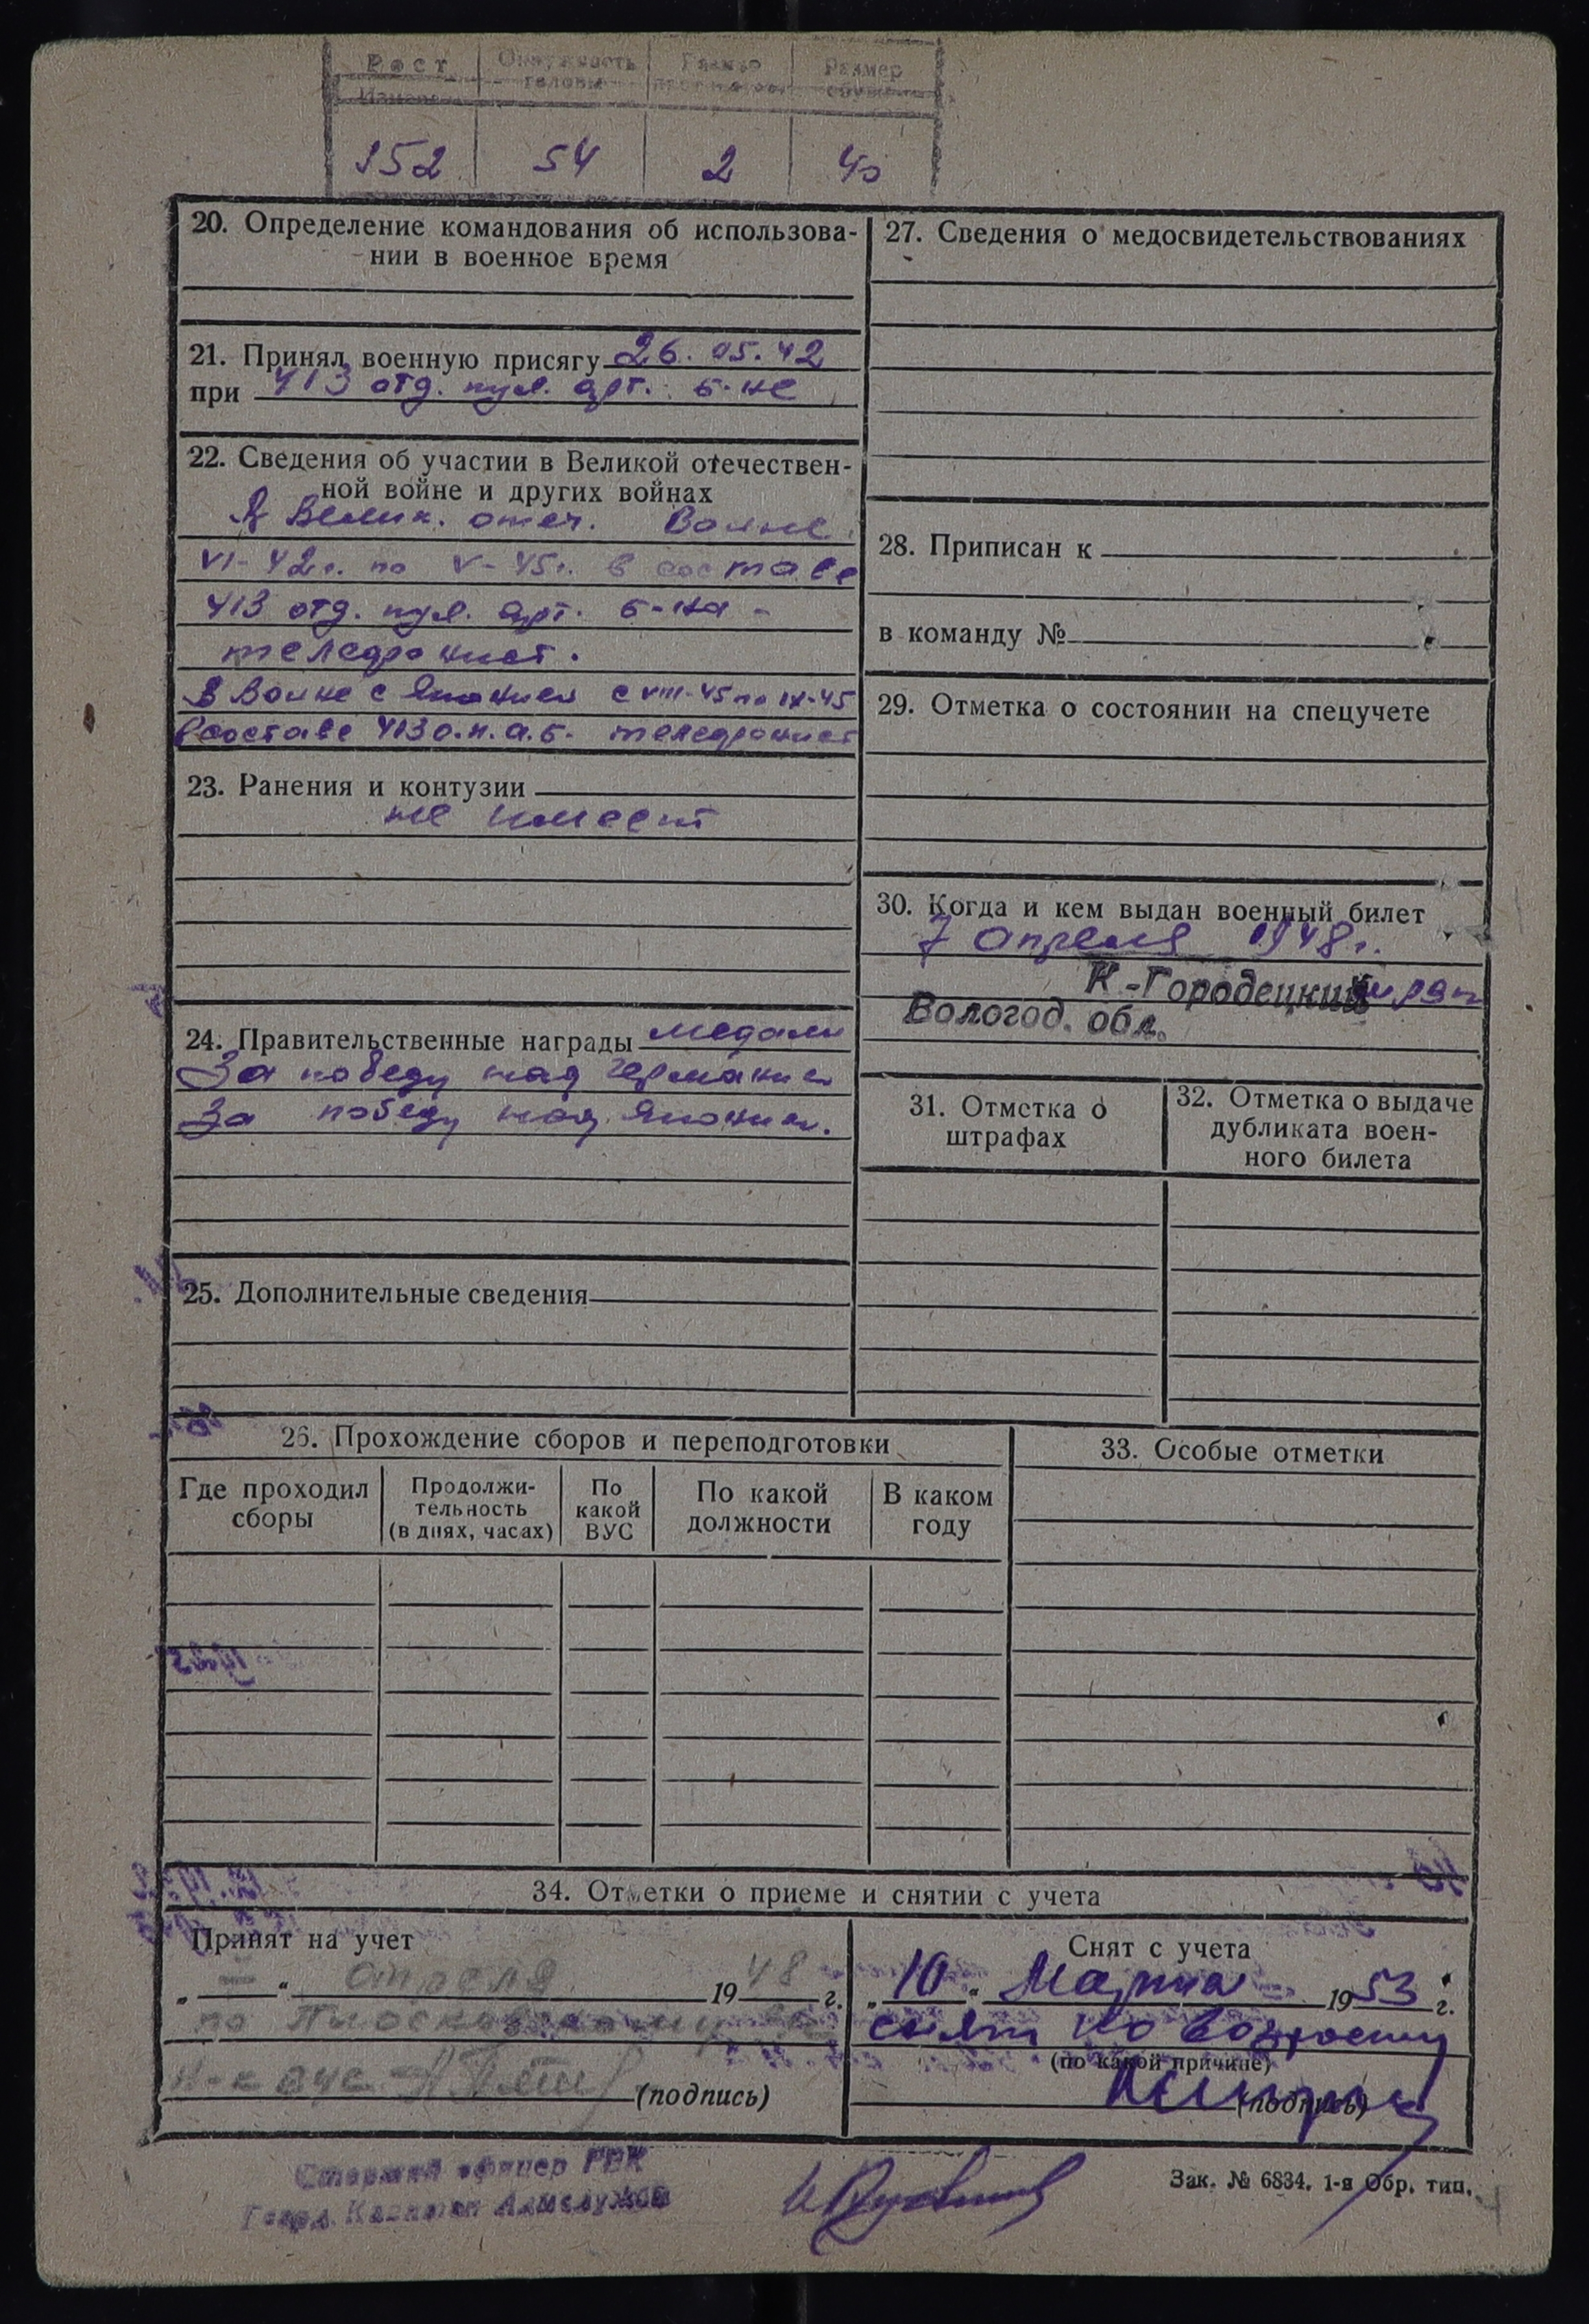 Рост Окружность головы Размер Размер
152 54 2 40
20. Определение командования об использова-
нии в военное время
21. Принял военную присягу 26.05.42
при 413 отд. пул. арт. б-не
22. Сведения об участии в Великой отечествен-
ной войне и других войнах
В Велик. отеч. Войне
VI-42г. по V-45г. в составе
413 отд. пул. арт. б-на -
телефонист.
В Войне с Японией с VIII-45 по IX-45
В составе 413 о.п.а.б. телефонист
23. Ранения и контузии
не имеет
24. Правительственные награды медали
За победу над Германией
За победу над Японией.
25. Дополнительные сведения
27. Сведения о медосвидетельствованиях
28. Приписан к
в команду №
29. Отметка о состоянии на спецучете
30. Когда и кем выдан военный билет
7 апреля 1948 г.
К.-Городецким
Вологод. обл.
31. Отметка о
штрафах
32. Отметка о выдаче
дубликата воен-
ного билета
26. Прохождение сборов и переподготовки
Где проходил
сборы
Продолжи-
тельность
(в днях, часах)
По
какой
ВУС
По какой
должности
В каком
году
33. Особые отметки
34. Отметки о приеме и снятии с учета
Принят на учет
„ — " апреля 1948 г.
по
(подпись)
Снят с учета
„10" Марта 1953 г.
снят по возрасту
(по какой причине)
(подпись)
Старший офицер РВК
Зак. № 6834. 1-я Обр. тип.